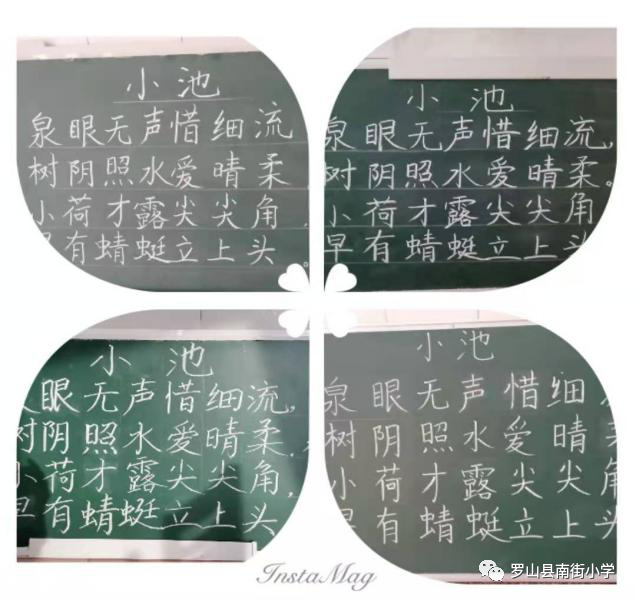 小池
泉眼无声惜细流
树阴照水爱晴柔
小荷才露尖尖角,
早有蜻蜓立上头。
小池
泉眼无声惜细流,
树阴照水爱晴柔。
小荷才露尖尖角
早有蜻蜓立上头
小池
眼无声惜细流,
树阴照水爱晴柔
小荷才露尖尖角,
早有蜻蜓立上头
小池
泉眼无声惜细
树阴照水爱晴
小荷才露尖尖角
早有蜻蜓立上头
InstaMag
罗山县南街小学